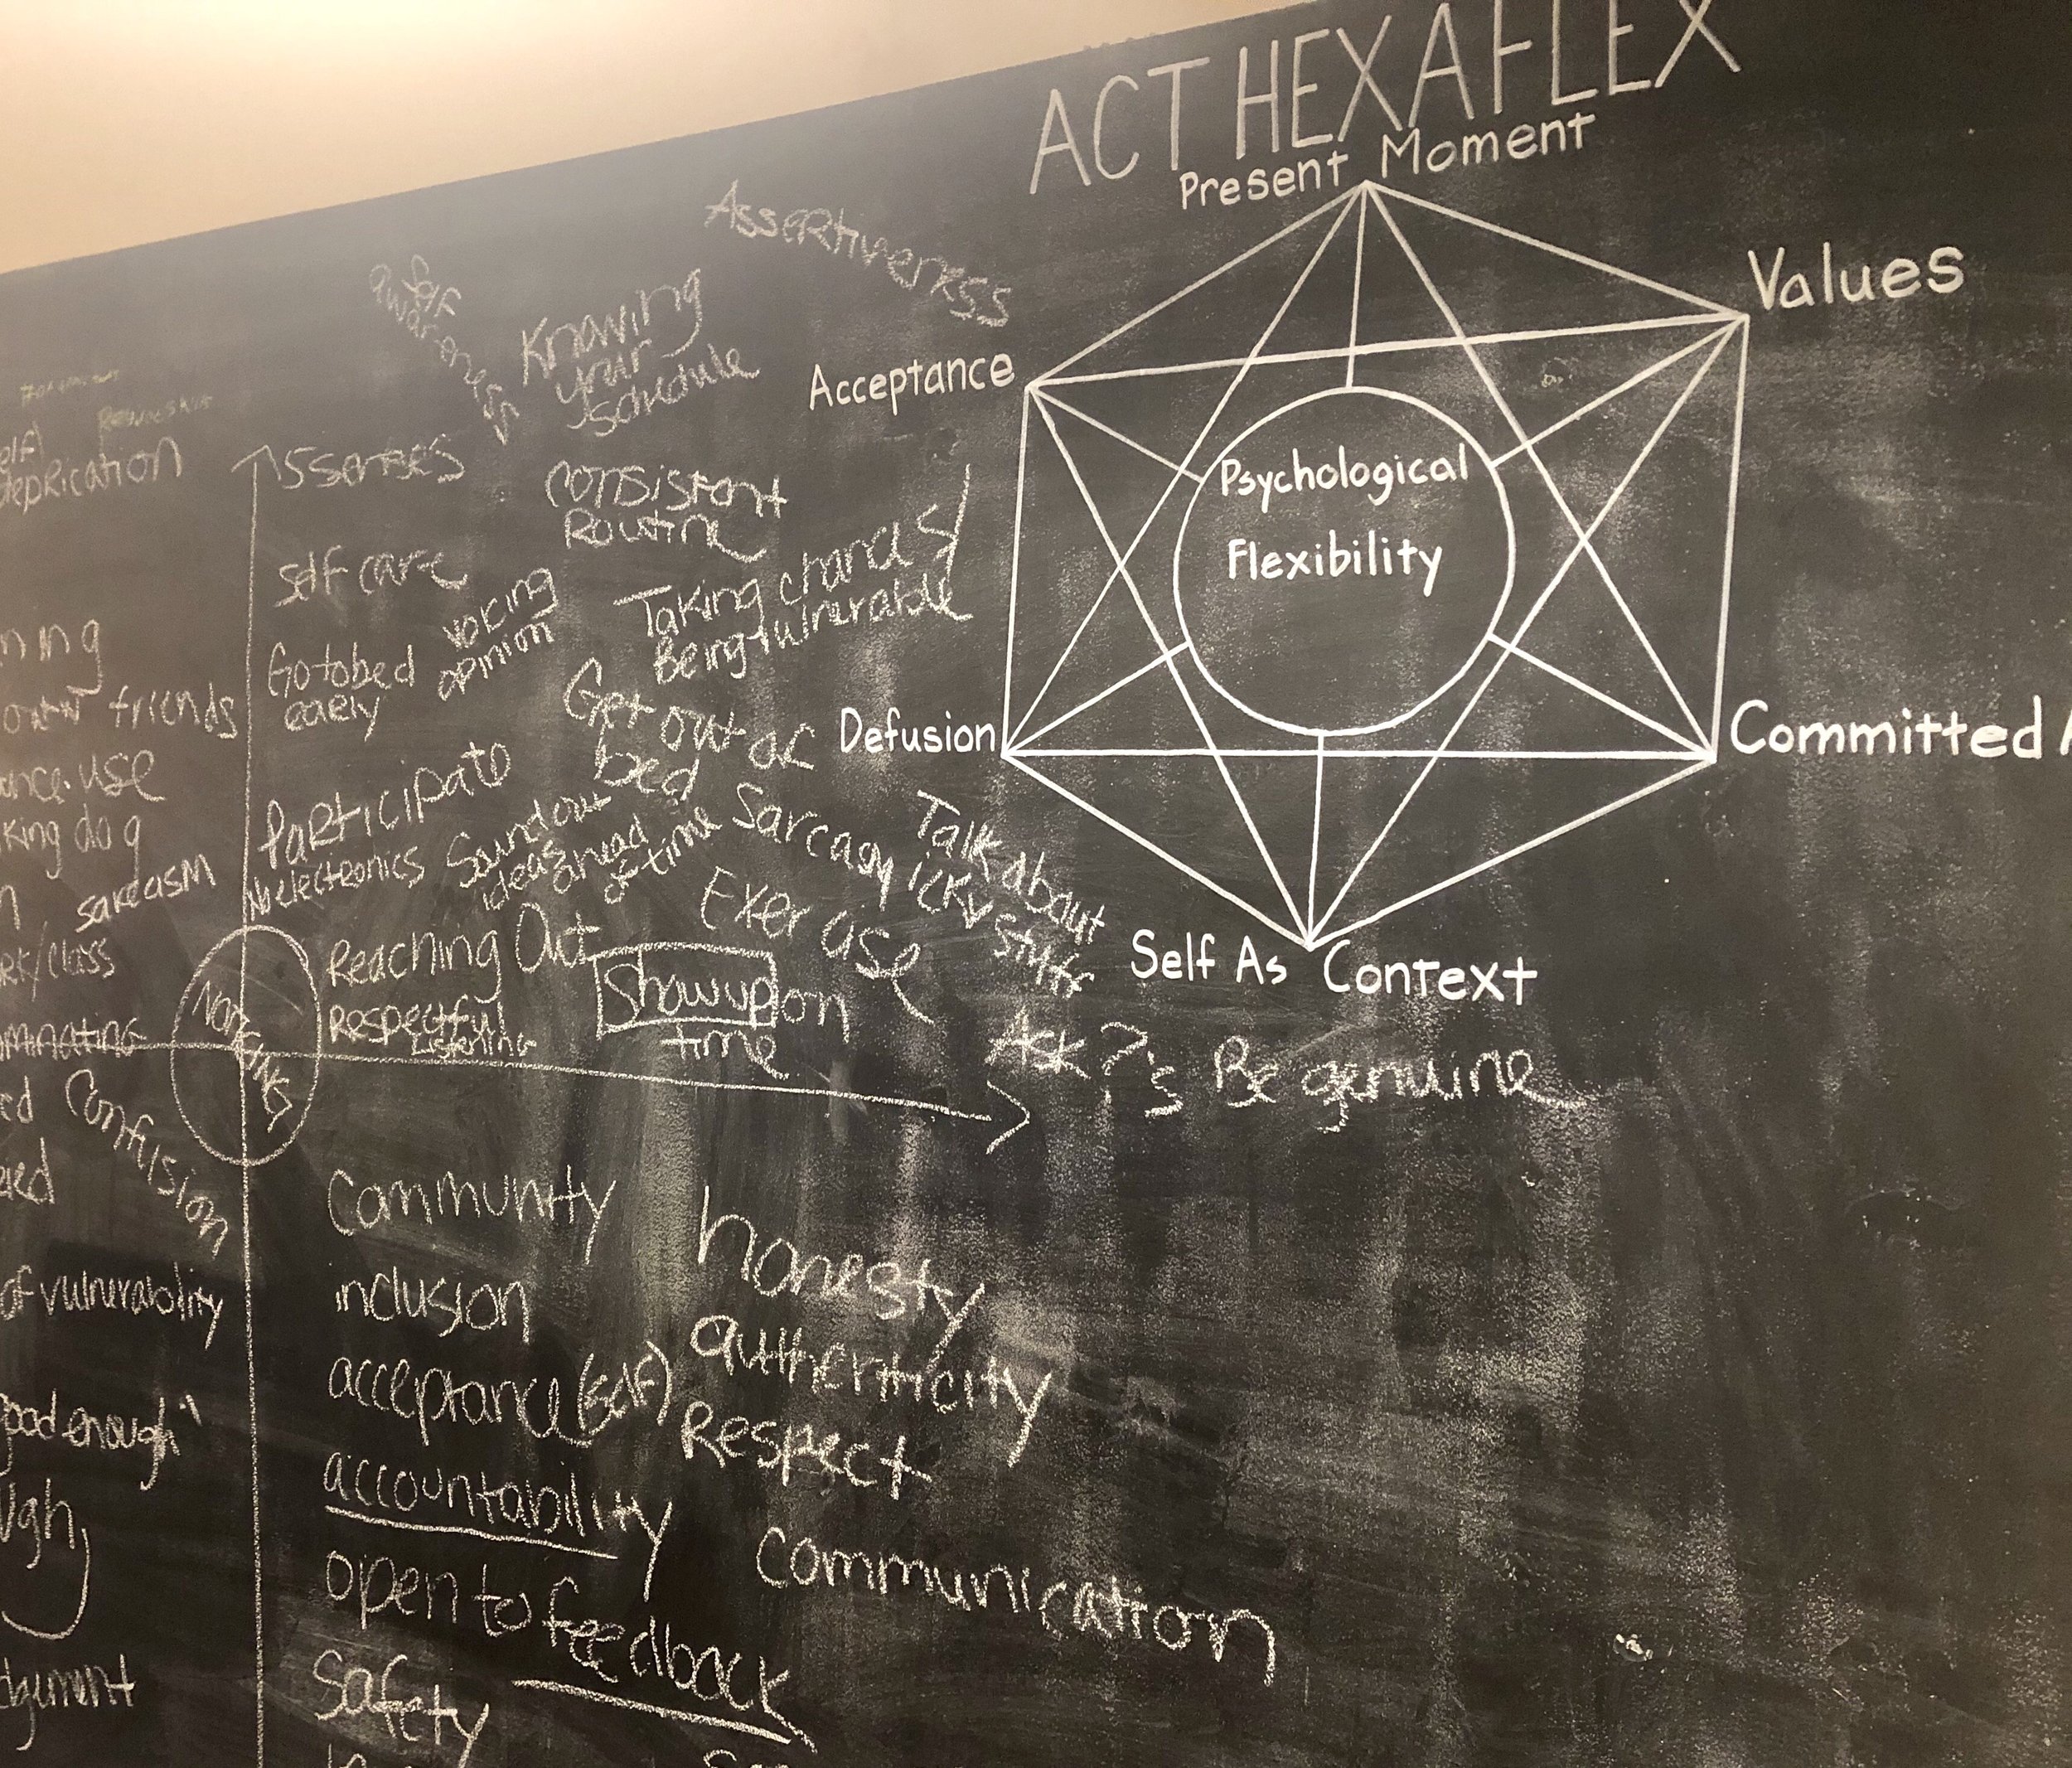 ACT HEXAFLEX
Present Moment
Values
Acceptance
Psychological
Flexibility
Defusion
Committed A
Self As Context
Assertiveness
Self
awareness
Knowing
your
schedule
eprication
5 senses
consistant
Routine
self care
Taking chances/
Being vulnerable
voicing
opinion
Go to bed
early
Get out of
bed
friends
use
king dog
Participate
No electronics
Sound out
ideas ahead
of time
Sarcasm
Talk about
icky stuff
sarcasm
/class
Exercise
Reaching Out
Respectful
Listening
Show up on
time
Ask ?'s
Be genuine
minating
NOTICING
Confusion
of vulnerability
good enough"
dgement
Community
honesty
inclusion
authenticity
acceptance (self)
Respect
accountability
Communication
open to feedback
Safety